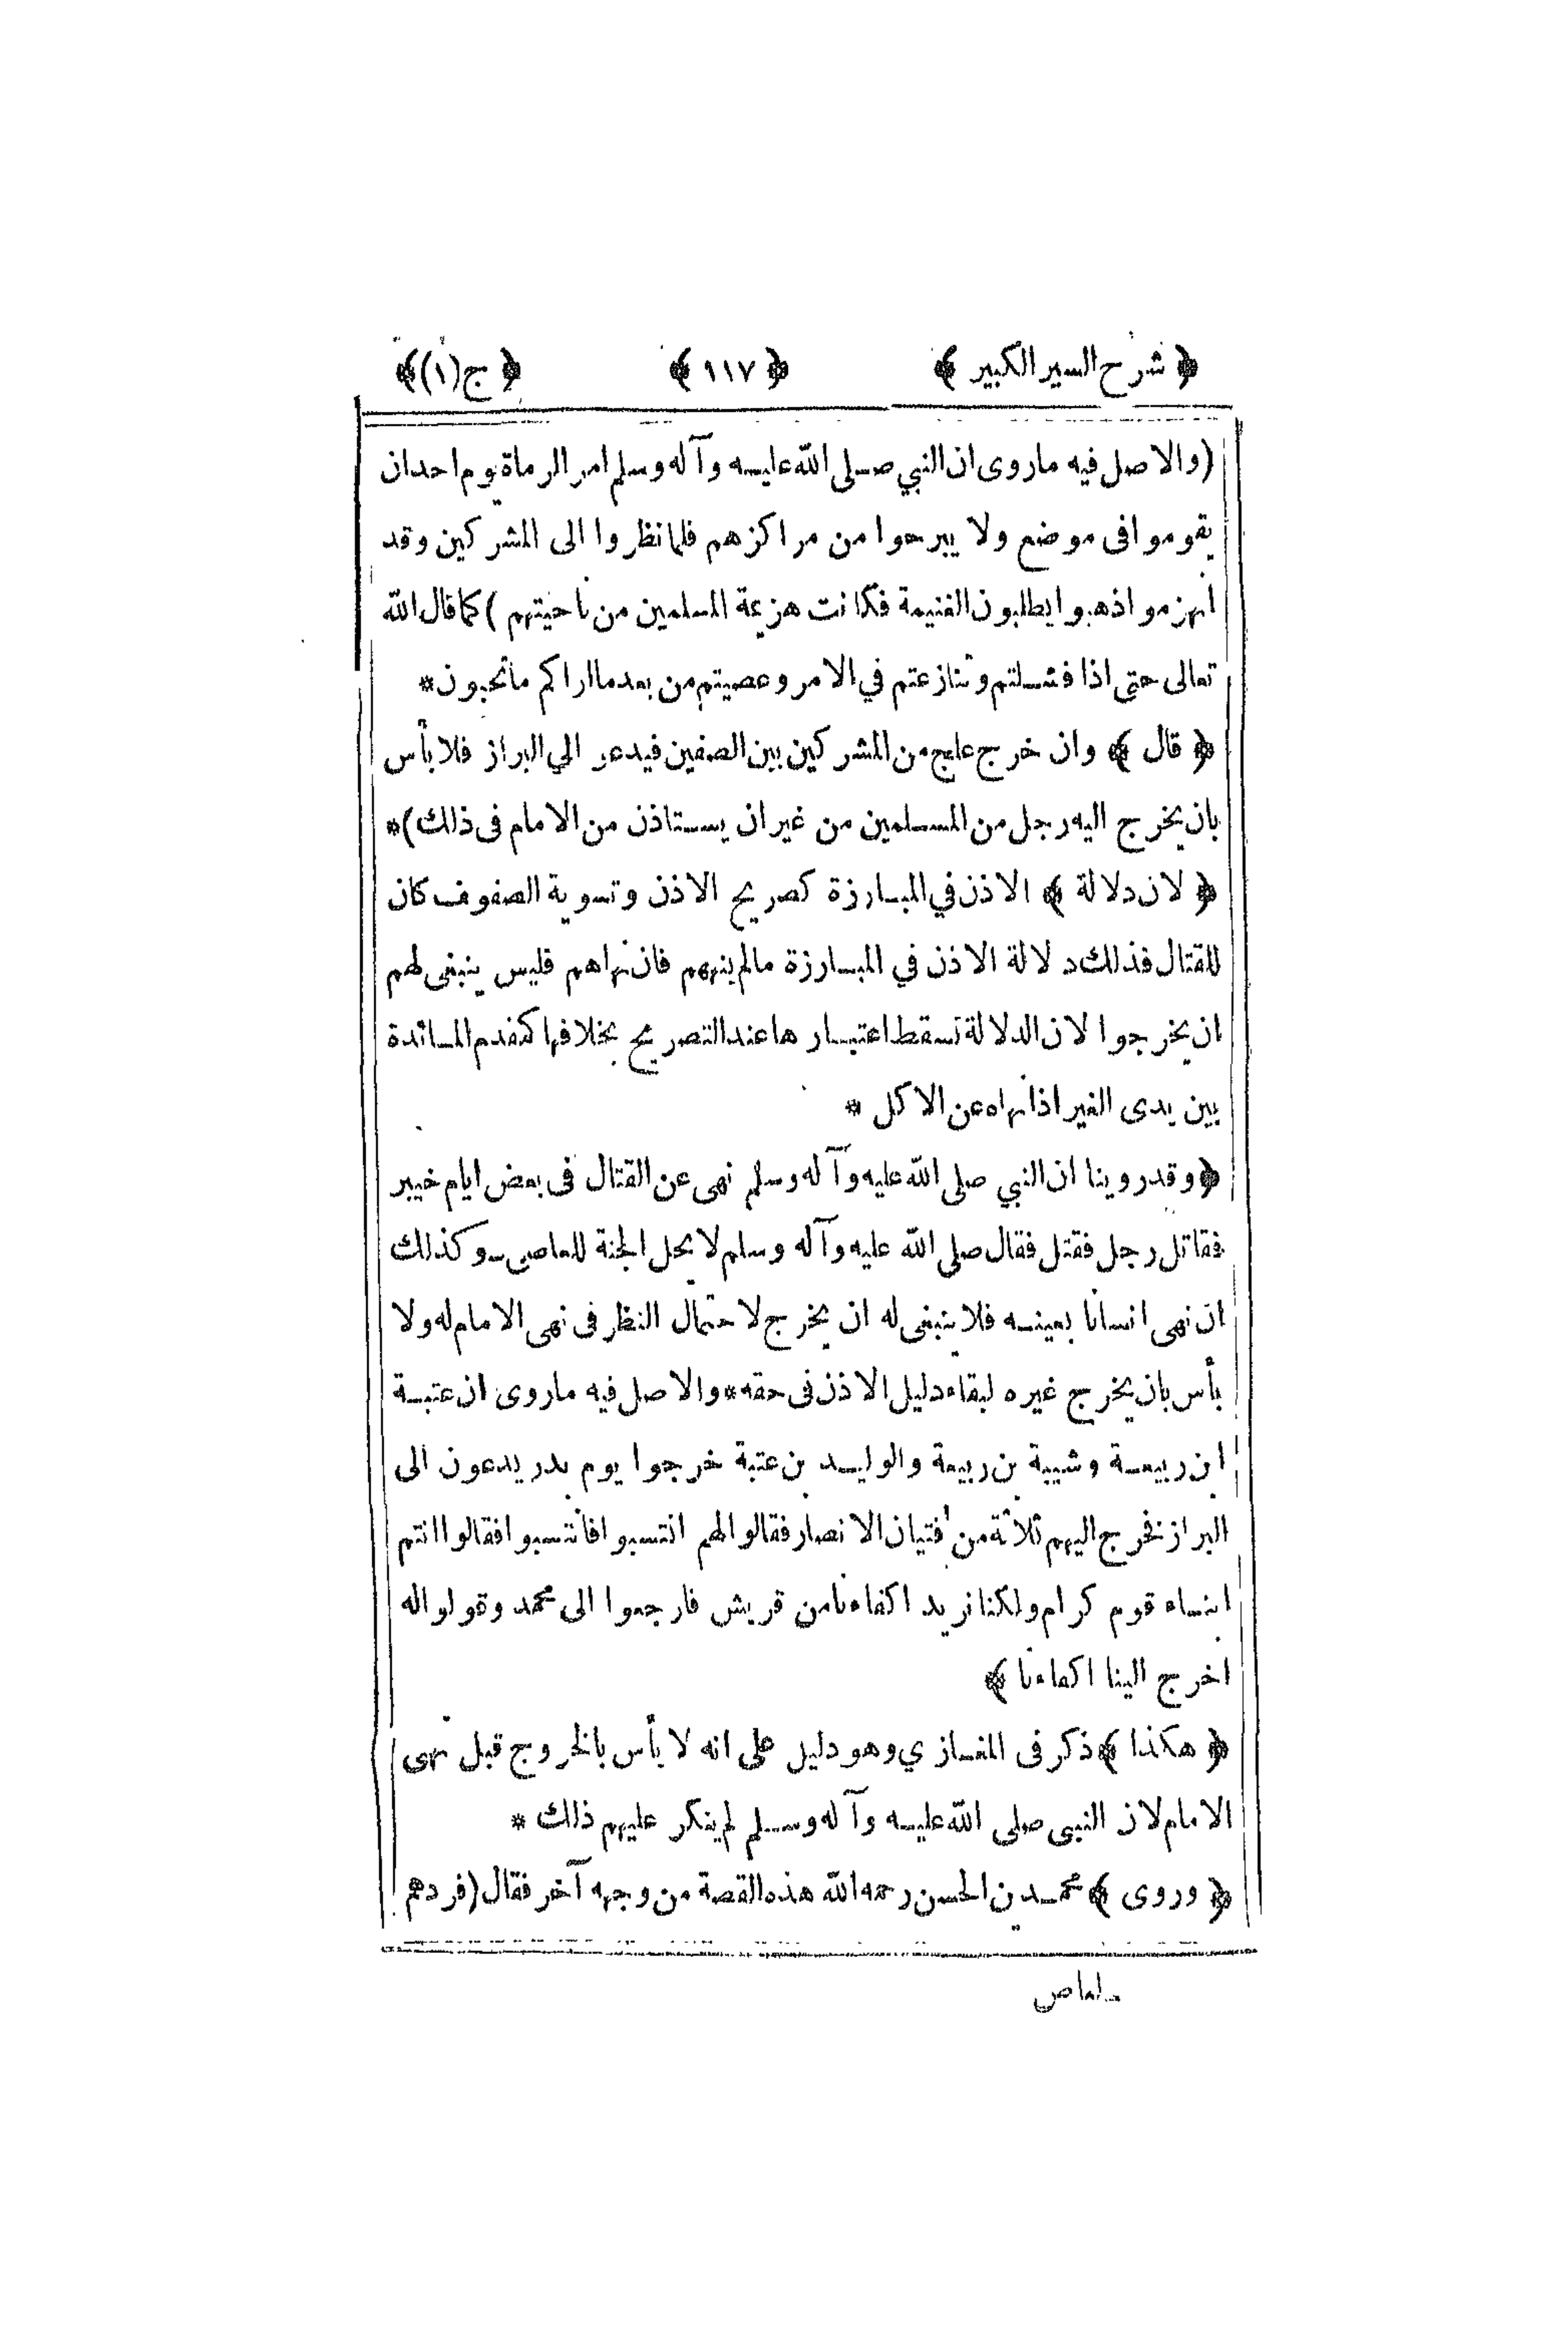 ﴿ شرح السير الكبير ﴾ ﴿ ١١٧ ﴾ ﴿ ج (١) ﴾
(والاصل فيه ماروى ان النبي صلى الله عليه وآله وسلم امر الرماة يوم احد ان
يقوموا فى موضع ولا يبرحوا من مراكزهم فلما نظروا الى المشركين وقد
انهزموا ذهبوا يطلبون الغنيمة فكانت هزيمة المسلمين من ناحيتهم ) كما قال الله
تعالى حتى اذا فشلتم وتنازعتم في الامر وعصيتم من بعد ما اراكم ما تحبون *
﴿ قال ﴾ وان خرج علج من المشركين بين الصفين فيدعو الي البراز فلا بأس
بان يخرج اليه رجل من المسلمين من غير ان يستاذن من الامام فى ذلك ) *
﴿ لان دلالة ﴾ الاذن في المبارزة كصريح الاذن وتسوية الصفوف كان
للقتال فذلك دلالة الاذن في المبارزة مالم ينههم فان نهاهم فليس ينبغى لهم
ان يخرجوا لان الدلالة تسقط اعتبارها عند التصريح بخلافها كمقدم المائدة
بين يدى الغير اذا نهاه عن الاكل *
﴿ وقد روينا ان النبي صلى الله عليه وآله وسلم نهى عن القتال فى بعض ايام خيبر
فقاتل رجل فقتل فقال صلى الله عليه وآله وسلم لا يحل الجنة للعاصى ـ وكذلك
ان نهى انسانا بعينه فلا ينبغى له ان يخرج لاحتمال النظر فى نهى الامام له ولا
بأس بان يخرج غيره لبقاء دليل الاذن فى حقه * والاصل فيه ماروى ان عتبة
ابن ربيعة وشيبة بن ربيعة والوليد بن عتبة خرجوا يوم بدر يدعون الى
البراز فخرج اليهم ثلاثة من فتيان الانصار فقالوا لهم انتسبوا فانتسبوا فقالوا انتم
ابناء قوم كرام ولكنا نريد اكفاءنا من قريش فارجعوا الى محمد وقولوا له
اخرج الينا اكفاءنا ﴾
﴿ هكذا ﴾ ذكر فى المغازي وهو دليل على انه لا بأس بالخروج قبل نهى
الامام لان النبى صلى الله عليه وآله وسلم لم ينكر عليهم ذلك *
﴿ وروى ﴾ محمد بن الحسن رحمه الله هذه القصة من وجهه آخر فقال (فردهم
لعاص